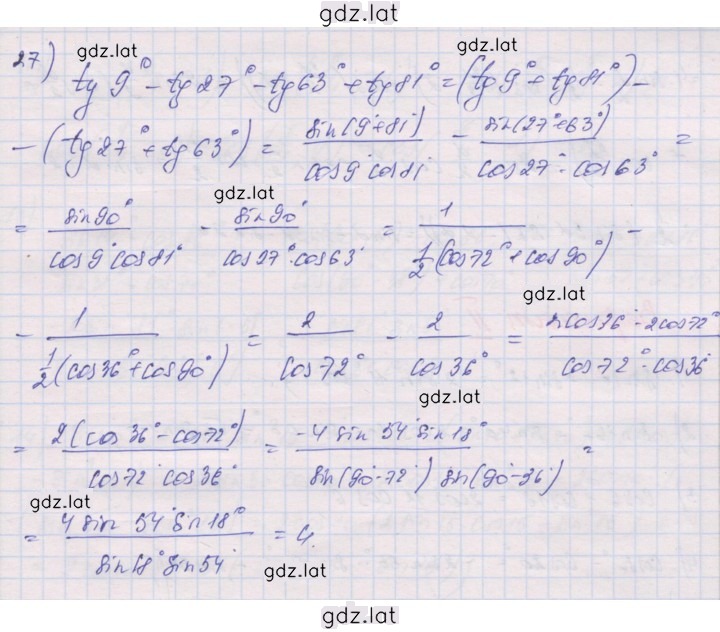 gdz.lat
27) gdz.lat gdz.lat
tg 9° - tg 27° - tg 63° + tg 81° = (tg 9° + tg 81°) -
- (tg 27° + tg 63°) = sin(9°+81) / cos 9° cos 81 - sin(27°+63°) / cos 27° · cos 63° =
gdz.lat
= sin 90° / cos 9° cos 81° - sin 90° / cos 27° · cos 63 = 1 / ½(cos 72° + cos 90°) -
gdz.lat
- 1 / ½(cos 36° + cos 90°) = 2 / cos 72° - 2 / cos 36° = 2cos 36° - 2cos 72° / cos 72° · cos 36
gdz.lat
= 2(cos 36° - cos 72°) / cos 72 cos 36 = -4 sin 54 sin 18° / sin(90-72) sin(90-36) =
gdz.lat
= 4 sin 54 sin 18° / sin 18° sin 54 = 4.
gdz.lat
gdz.lat